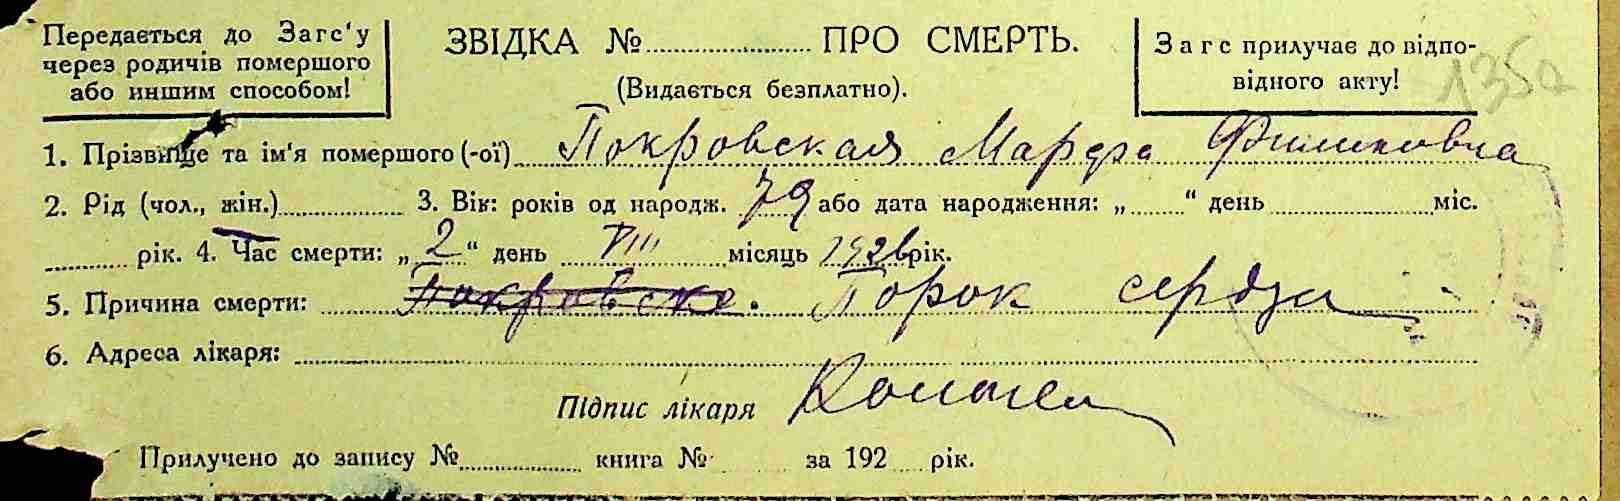 Передається до Загс'у
через родичів помершого
або иншим способом!
ЗВІДКА №............ ПРО СМЕРТЬ.
(Видається безплатно).
Загс прилучає до відпо-
відного акту!
135а
1. Прізвище та ім'я помершого (-ої) Покровская Марфа Филиповна
2. Рід (чол., жін.)............ 3. Вік: років од народж. 79 або дата народження: „......“ день ............ міс.
......... рік. 4. Час смерти: „2“ день VIII місяць 1926 рік.
5. Причина смерти: Покровско. Порок сердза
6. Адреса лікаря:
Підпис лікаря
Прилучено до запису №............ книга № за 192 .... рік.